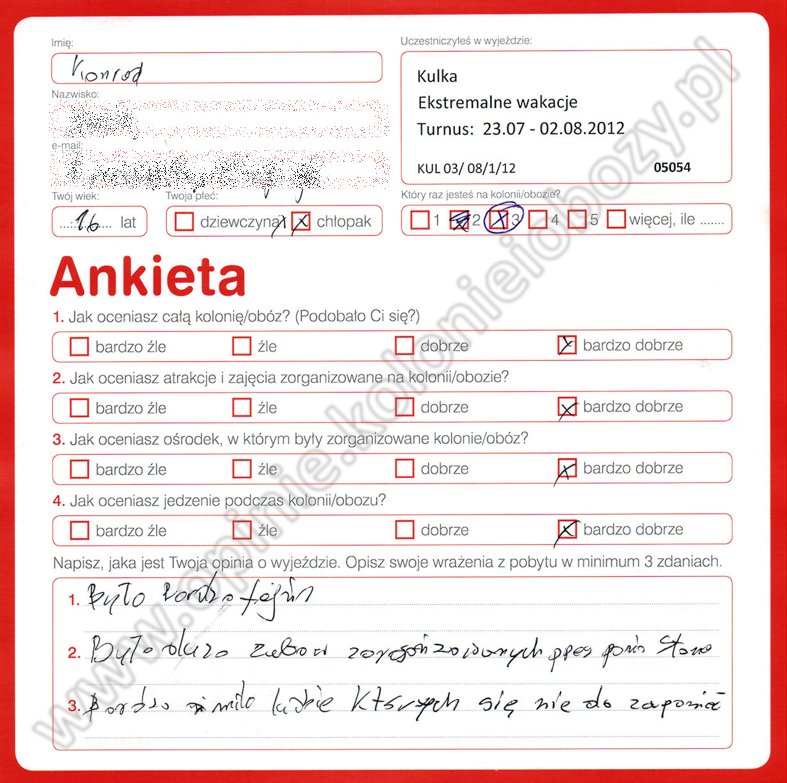 Imię:
Konrad
Uczestniczyłeś w wyjeździe:
Kulka
Ekstremalne wakacje
Turnus: 23.07 - 02.08.2012
KUL 03/ 08/1/12 05054
Nazwisko:
e-mail:
Twój wiek:
16 lat
Twoja płeć:
dziewczyna chłopak
Który raz jesteś na kolonii/obozie?
1 2 3 4 5 więcej, ile .......
Ankieta
1. Jak oceniasz całą kolonię/obóz? (Podobało Ci się?)
bardzo źle źle dobrze bardzo dobrze
2. Jak oceniasz atrakcje i zajęcia zorganizowane na kolonii/obozie?
bardzo źle źle dobrze bardzo dobrze
3. Jak oceniasz ośrodek, w którym były zorganizowane kolonie/obóz?
bardzo źle źle dobrze bardzo dobrze
4. Jak oceniasz jedzenie podczas kolonii/obozu?
bardzo źle źle dobrze bardzo dobrze
Napisz, jaka jest Twoja opinia o wyjeździe. Opisz swoje wrażenia z pobytu w minimum 3 zdaniach.
1. Było bardzo fajnie
2. Było dużo zabaw zorganizowanych przez
3. Bardzo miło ludzie których się nie do
www.opinie.kolonieiobozy.pl